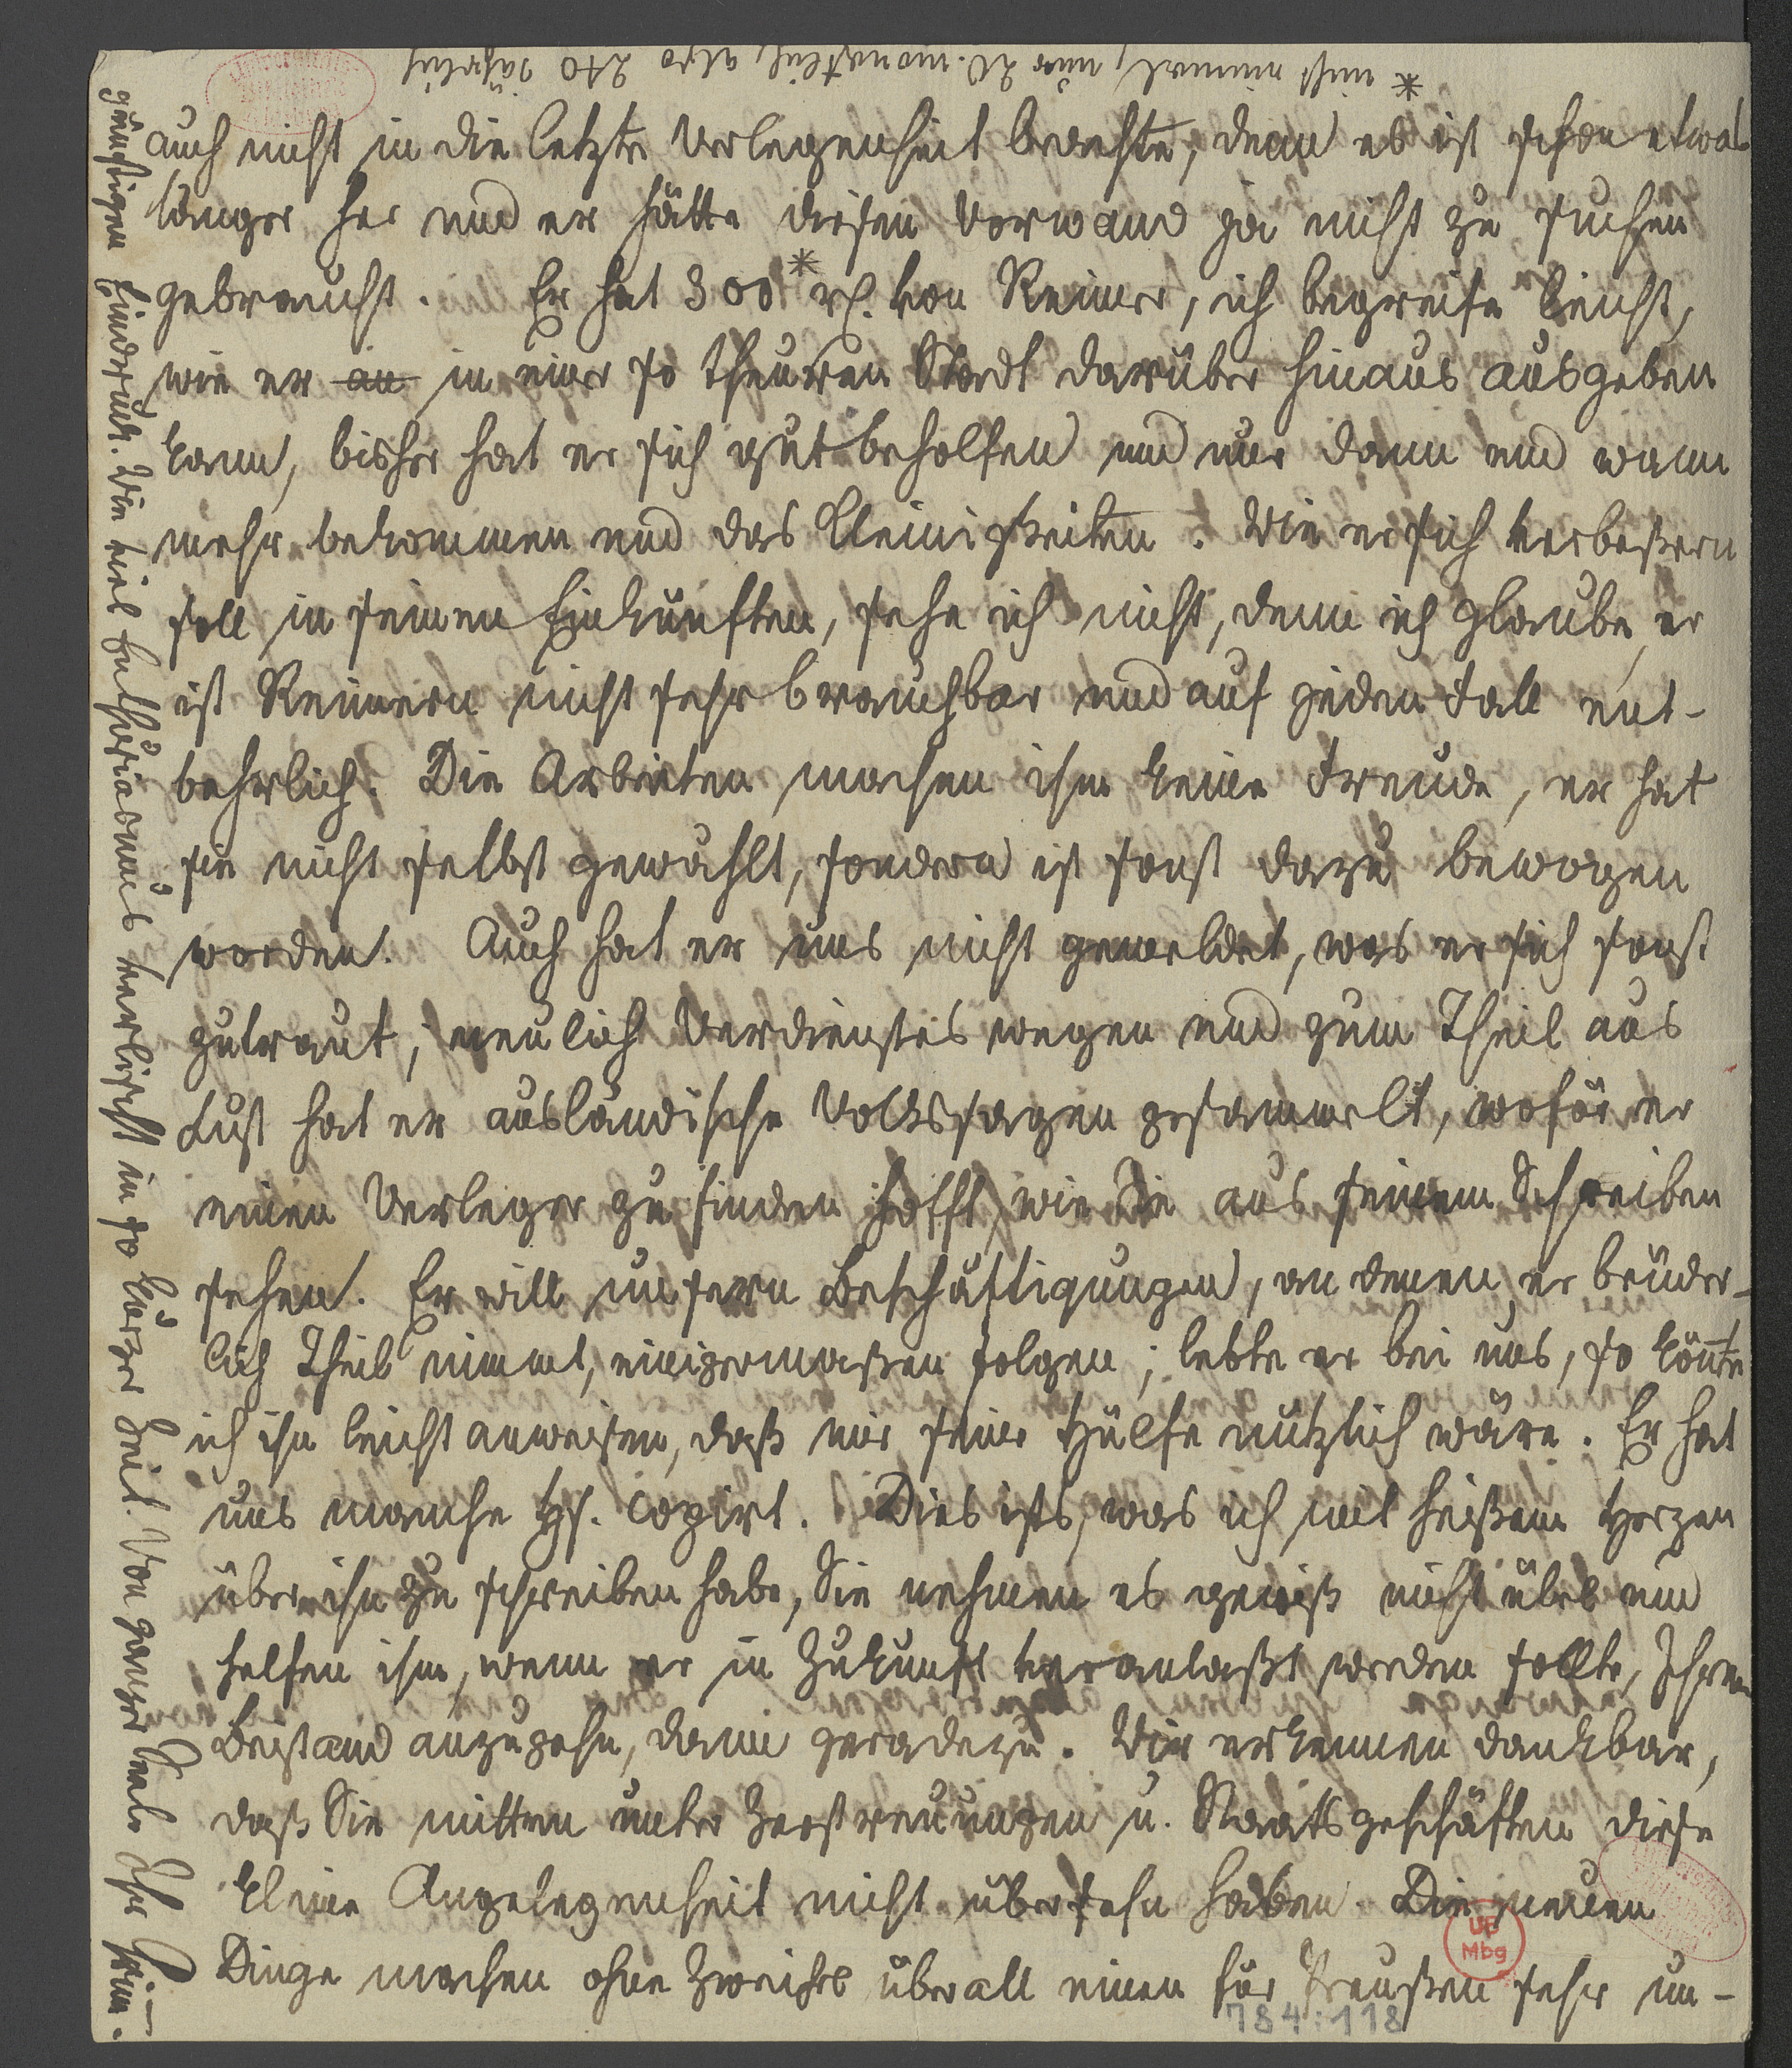 * nicht einmal, nur 20. monatlich, also 240 jährlich
auch nicht in die letzte Verlegenheit brachte, denn es ist schon etwas
länger her und er hätte diesen Vorwand ja nicht zu suchen
gebraucht. Er hat 300* rh. von Reimer, ich begreife leicht,
wie er an in einer so theuren Stadt darüber hinaus ausgeben
kann, bisher hat er sich gut beholfen und nur dann und wann
mehr bekommen und das Kleinigkeiten. Wie er sich verbeßern
soll in seinen Einkünften, sehe ich nicht, denn ich glaube, er
ist Reimern nicht sehr brauchbar und auf jeden Fall ent-
behrlich. Die Arbeiten machen ihm keine Freude, er hat
sie nicht selbst gewählt, sondern ist sonst dazu bewogen
worden. Auch hat er uns nicht gemeldet, was er sich sonst
zutraut, neulich Verdienstes wegen und zum Theil aus
Lust hat er ausländische Volkssagen gesammelt, wofür er
einen Verleger zu finden hofft, wie Sie aus seinem Schreiben
sehen. Er will unsern Beschäftigungen, an denen er brüder-
lich Theil nimmt, einigermaßen folgen; lebte er bei uns, so könnte
ich ihn leicht anweisen, daß mir seine Hülfe nützlich wäre. Er hat
uns manche Hs. copirt. Dies ists, was ich mit heißem Herzen
über ihn zu schreiben habe, Sie nehmen es gewiß nicht übel und
helfen ihm, wenn er in Zukunft veranlaßt werden sollte, Ihren
Beistand anzugehn, dann geradezu. Wir erkennen dankbar,
daß Sie mitten unter Zerstreuungen u. Staatsgeschäften diese
kleine Angelegenheit nicht übersehn haben. Die neuen
Dinge machen ohne Zweifel überall einen für Preußen sehr un-
günstigen Eindruck. Wie viel Enthusiasmus verlischt in so kurzer Zeit. Von ganzer Seele Ihr Grim.
UB
Mbg
784:118